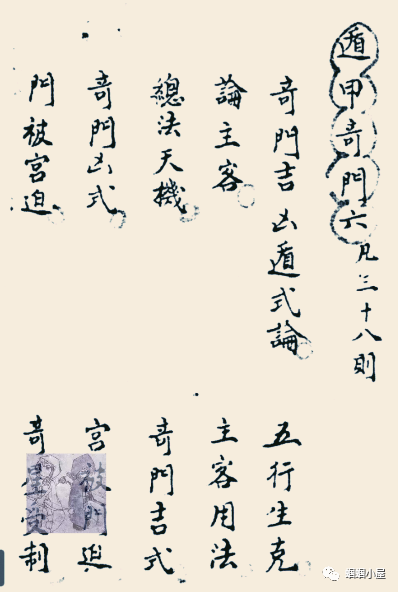 遁甲奇門六凡三十八則
奇門吉凶遁式論 五行生克
論主客 主客用法
總法天機 奇門吉式
奇門凶式 宮被門迫
門被宮迫 奇星受制
小屋